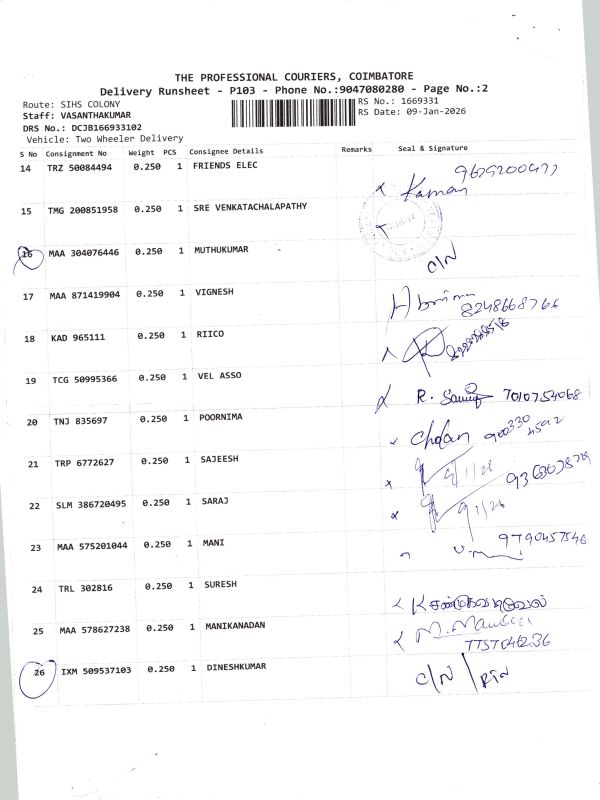 THE PROFESSIONAL COURIERS, COIMBATORE
Delivery Runsheet - P103 - Phone No.:9047080280 - Page No.:2
Route: SIHS COLONY
RS No.: 1669331
Staff: VASANTHAKUMAR
RS Date: 09-Jan-2026
DRS No.: DCJB166933102
Vehicle: Two Wheeler Delivery
S No Consignment No Weight PCS Consignee Details Remarks Seal & Signature
14 TRZ 50084494 0.250 1 FRIENDS ELEC
15 TMG 200851958 0.250 1 SRE VENKATACHALAPATHY
16 MAA 304076446 0.250 1 MUTHUKUMAR - C/N
17 MAA 871419904 0.250 1 VIGNESH 8248668766
18 KAD 965111 0.250 1 RIICO
19 TCG 50995366 0.250 1 VEL ASSO R. 7010754068
20 TNJ 835697 0.250 1 POORNIMA
21 TRP 6772627 0.250 1 SAJEESH 9/1/26
22 SLM 386720495 0.250 1 SARAJ 9/1/26
23 MAA 575201044 0.250 1 MANI 9790457546
24 TRL 302816 0.250 1 SURESH
25 MAA 578627238 0.250 1 MANIKANADAN
26 IXM 509537103 0.250 1 DINESHKUMAR C/N